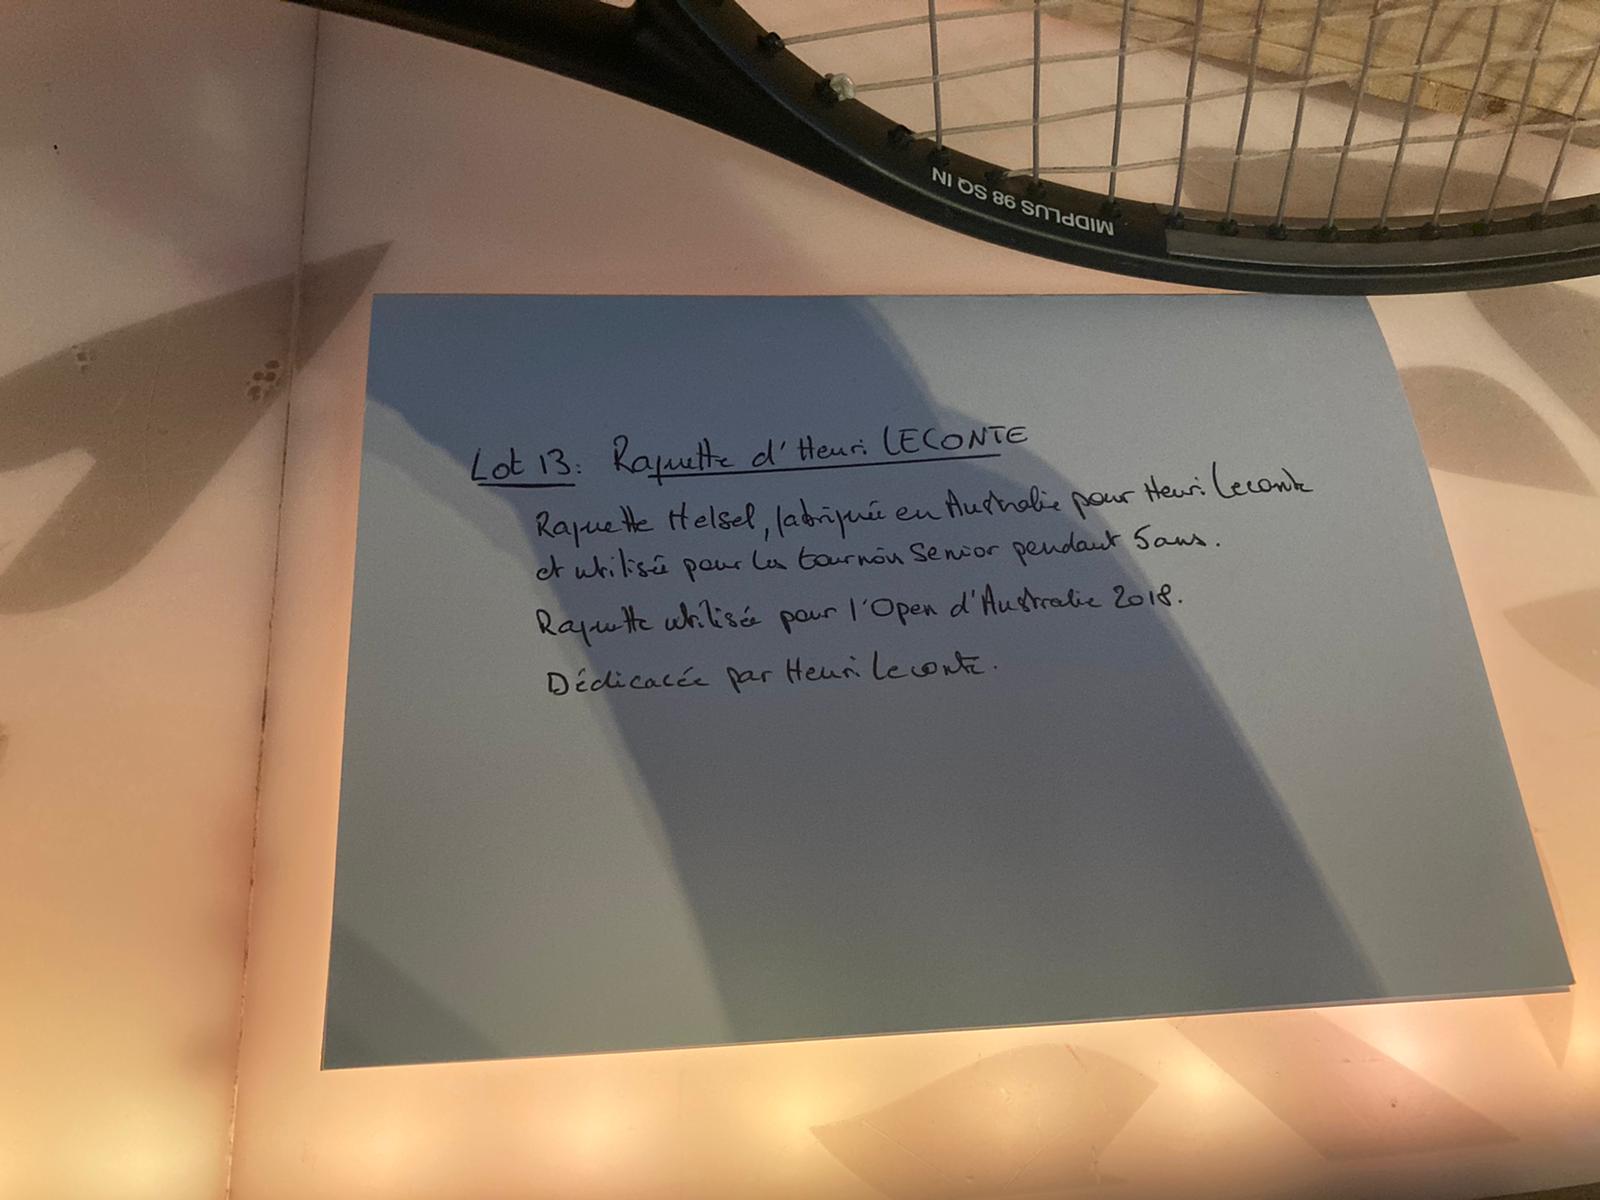 MIDPLUS 98 SQ IN
Lot 13: Raquette d'Henri LECONTE
Raquette Helsel, fabriquée en Australie pour Henri Leconte
et utilisée pour les tournois Senior pendant 5 ans.
Raquette utilisée pour l'Open d'Australie 2018.
Dédicacée par Henri Leconte.